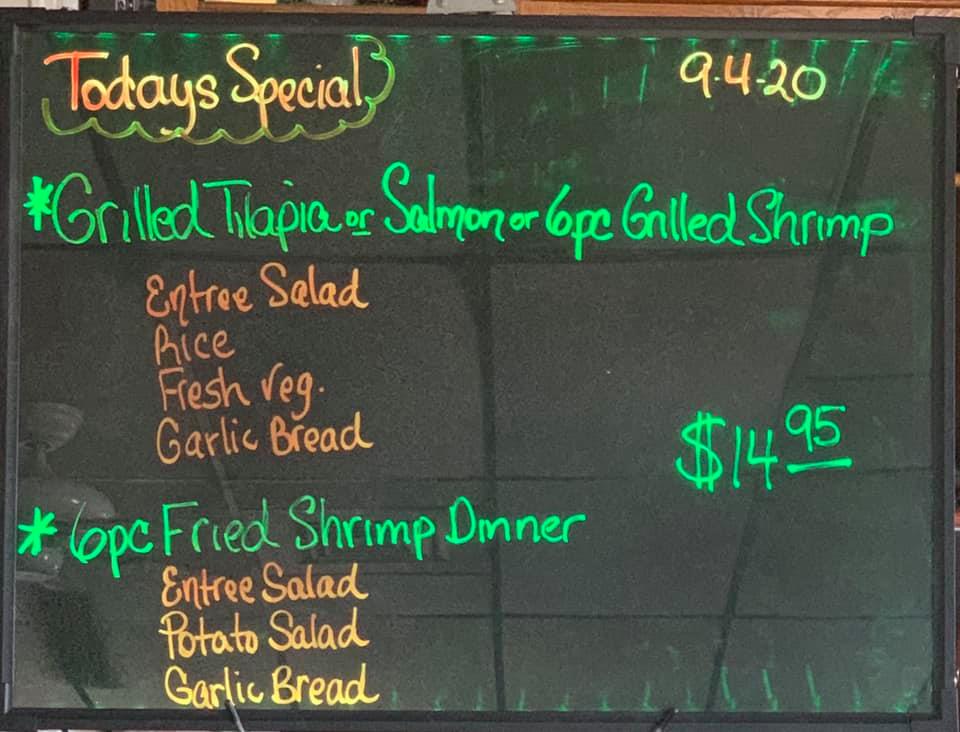 Todays Special
9-4-20
*Grilled Tilapia or Salmon or 6pc Grilled Shrimp
Entree Salad
Rice
Fresh Veg.
Garlic Bread
$14 95
* 6pc Fried Shrimp Dinner
Entree Salad
Potato Salad
Garlic Bread